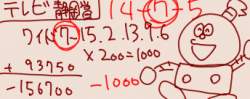 テレビ静岡賞 14-⑰-5
ワイド⑦-15.2.13.9.6
×200=1000
+ 93750 -1000
-156700